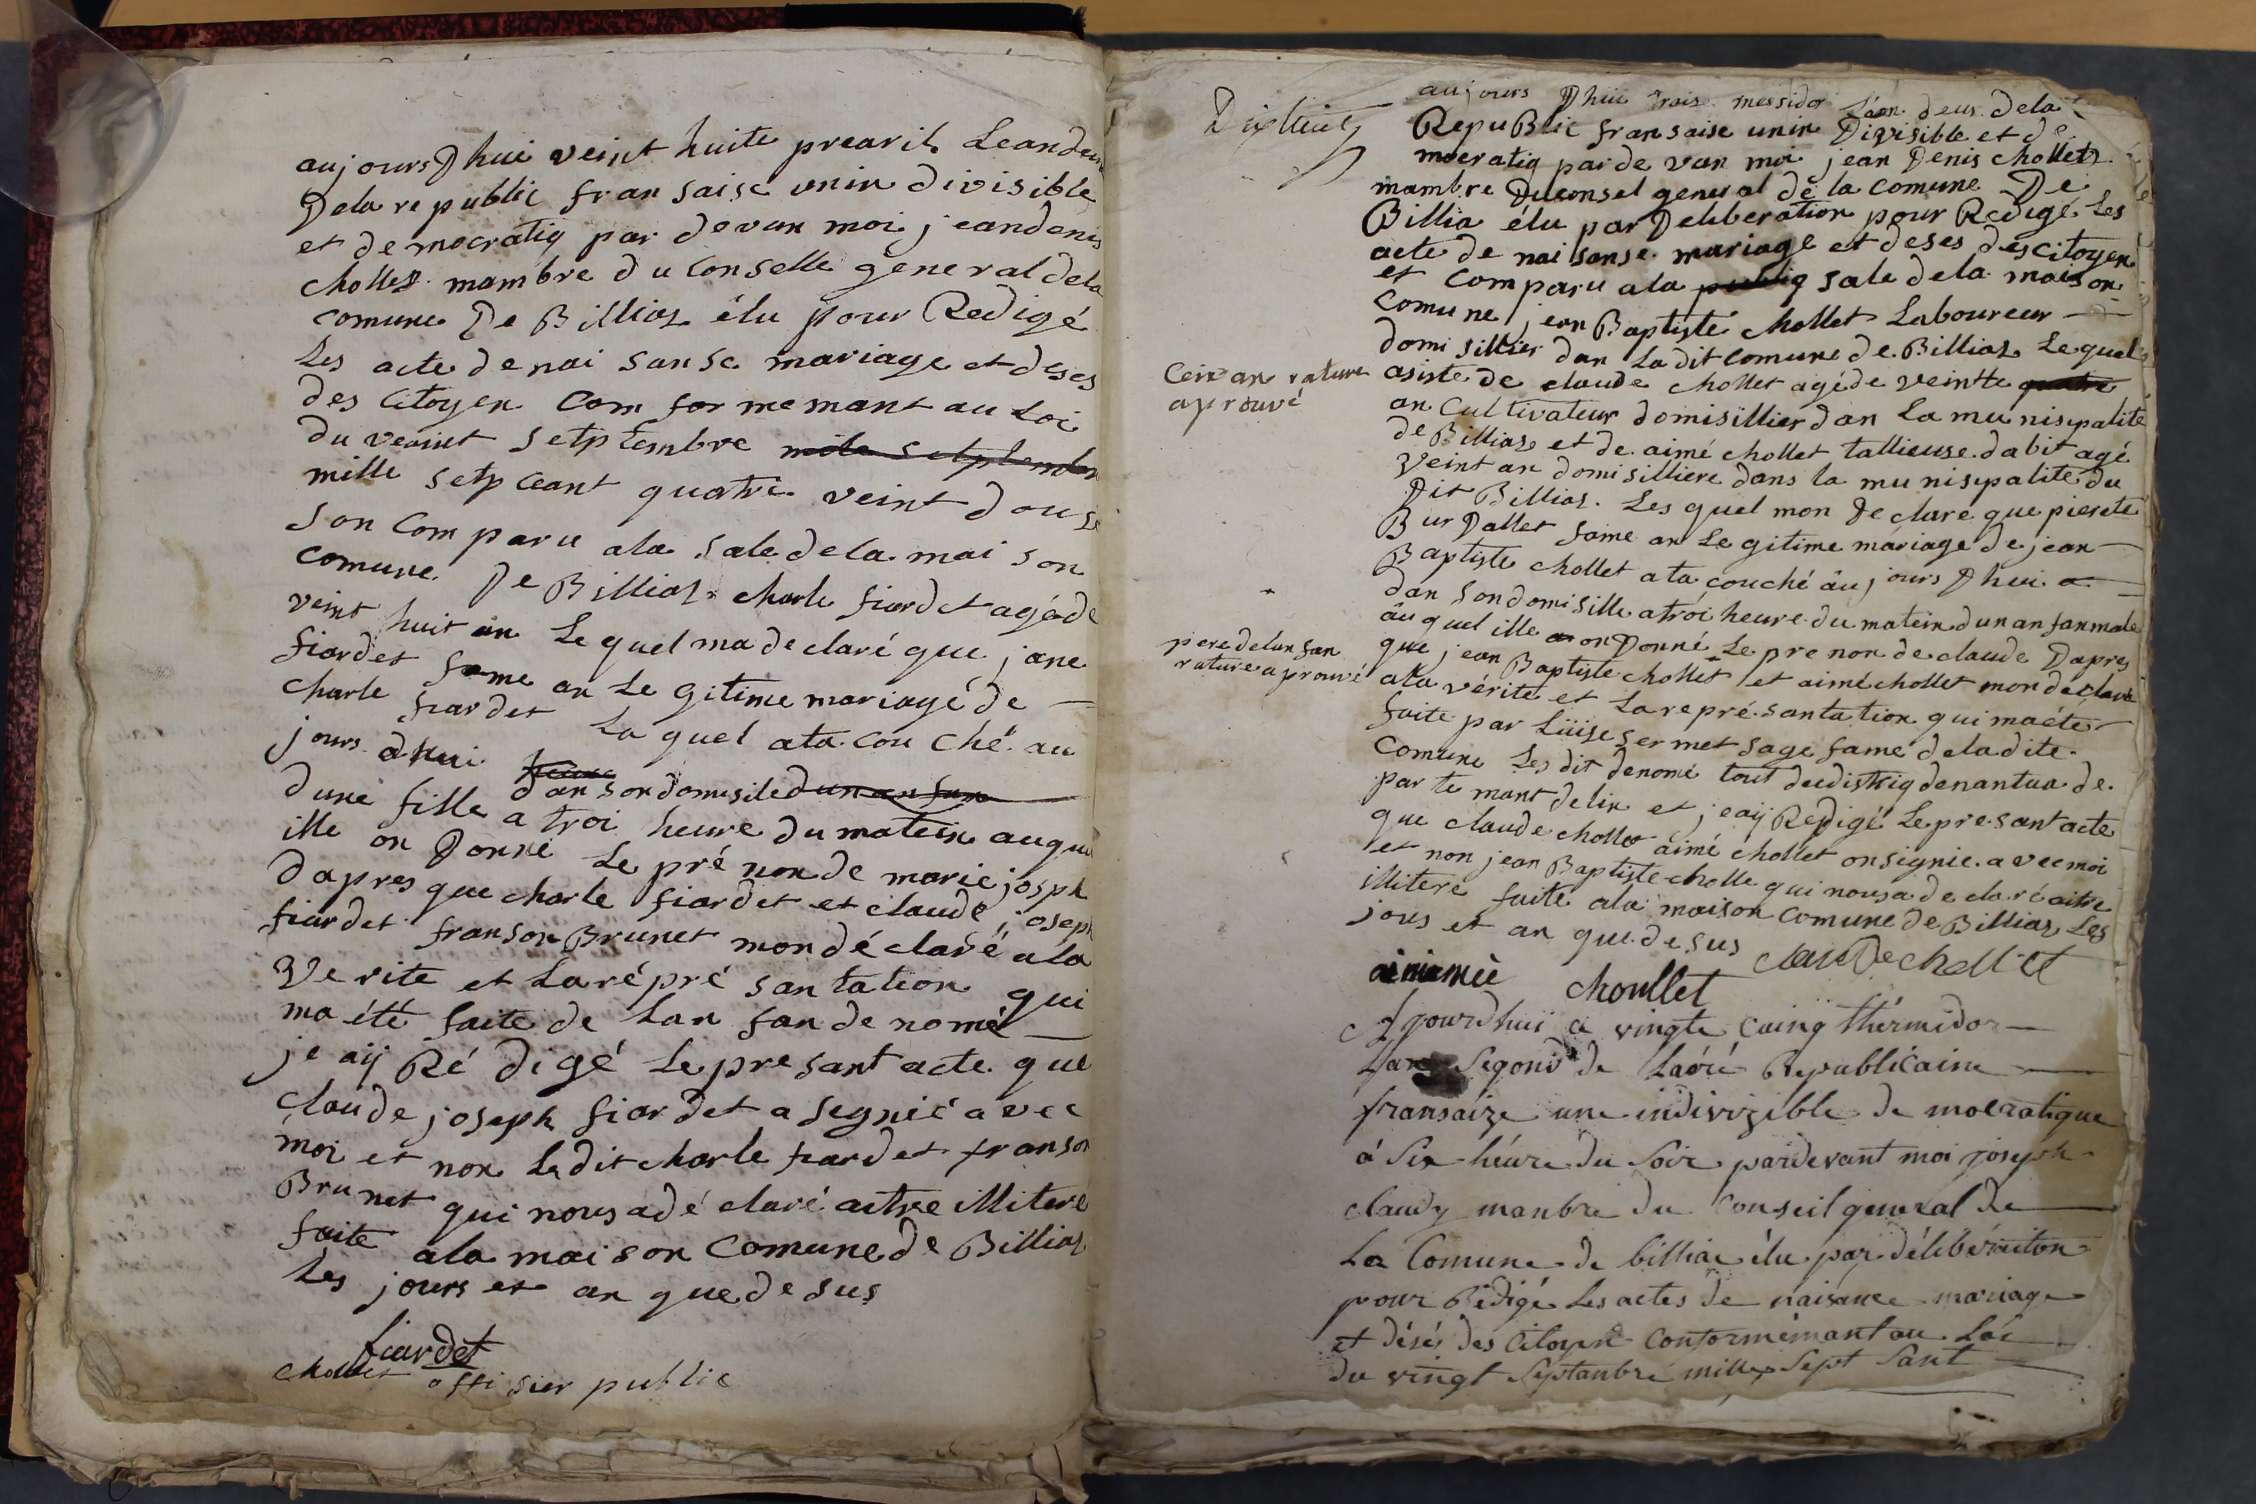 aujours Dhui veint huite prearil Leandeu
Dela republic fransaise unin divisible
et democratiq par devan moi jeandenis
chollet mambre du Conselle general dela
comune De Billiaz élu pour Redigé
Les acte denai sanse mariage et deses
des Citoyen Com for memant au Loi
du veaint Setptembre mile Setptembre
mille setp ceant quatre veint douse
Son Comparu ala Sale dela mai son
comune De Billiaz charle fiardet agéde
veint huit an Le quel ma declaré que jane
fiardet fame an Le gitime mariagé de
charle fiardet La quel ata cou ché au
jours dhui dan son domesile dun an fan
dune fille a troi heure du matein auquel
ille on Donné Le pré non de marie josph
dapres que charle fiardet et claude joseph
fiardet franson Brunet mon déclaré ala
Verite et Larépré santation qui
ma été faite de Lan fan de nomé
je aij Ré digé Le presant acte que
Claude joseph fiardet a segnié avec
moi et non Ledit charle fiardet franson
Brunet qui nous adé claré aitre illiteré
faite ala maison Comune de Billiaz
Les jours et an que de sus
fiardet
chollet offisier public
aujours Dhui trois messidor Léan deus dela
RepuBlic fransaise unin Divisible et dé
mocratiq parde van moi jean Denis chollet
mambre Duconsel general de la comune De
Billia élu par Deliberation pour Redigé Les
acte de nai sanse mariage et deses des citoyen
et Comparu ala publiq sale dela maison
Comune jean Baptiste chollet Laboureur
domi sillier dan Ladit comune de Billiaz Le quel
Ceire an rature
aprouvé
asiste de claude chollet agé de veintte quatre
an Cultivateur domisillier dan La munisipalite
de Billiaz et de aimé chollet tallieuse dabit agé
Veint an domisilliere dans la munisipalite du
Dit Billiaz Les quel mon declaré que pierete
Bur Dallet fame an Le gitime mariage de jean
Baptiste chollet ata couché aujours Dhui a
dan son domisille a troi heure du matein dun an fan male
auquel ille on Donné Le pre non de claude Dapres
pere delan fan
rature aprouvé
que jean Baptiste chollet et aimé chollet mon declaré
ala vérité et La repré santation qui ma été
faite par Luise sermet sage fame dela dite
Comune Les dit denomé tout de distriq denantua de
par te mant delin et jeaij Redigé Le pre sant acte
que claude chollet aimé chollet on signie avec moi
et non jean Baptiste cholle qui nous a de claré aitre
illiteré faite ala maison comune de Billiaz Les
jous et an que de sus clauDe chollet
aimée choullet
Ajourdhui ce vingte cainq thérmidor
Lan Segond de Laéré Republicaine
fransaize une indivizible de mocratique
à Six héure du Soir pardevant moi joseph
claudy manbre du Conseil general de
La Comune de billiac élu par déliberaiton
pour Rédigé Les actes de naisance mariage
et désés des Citoyen Conformémant au Loi
du vingt Septanbre mille Sept Sant